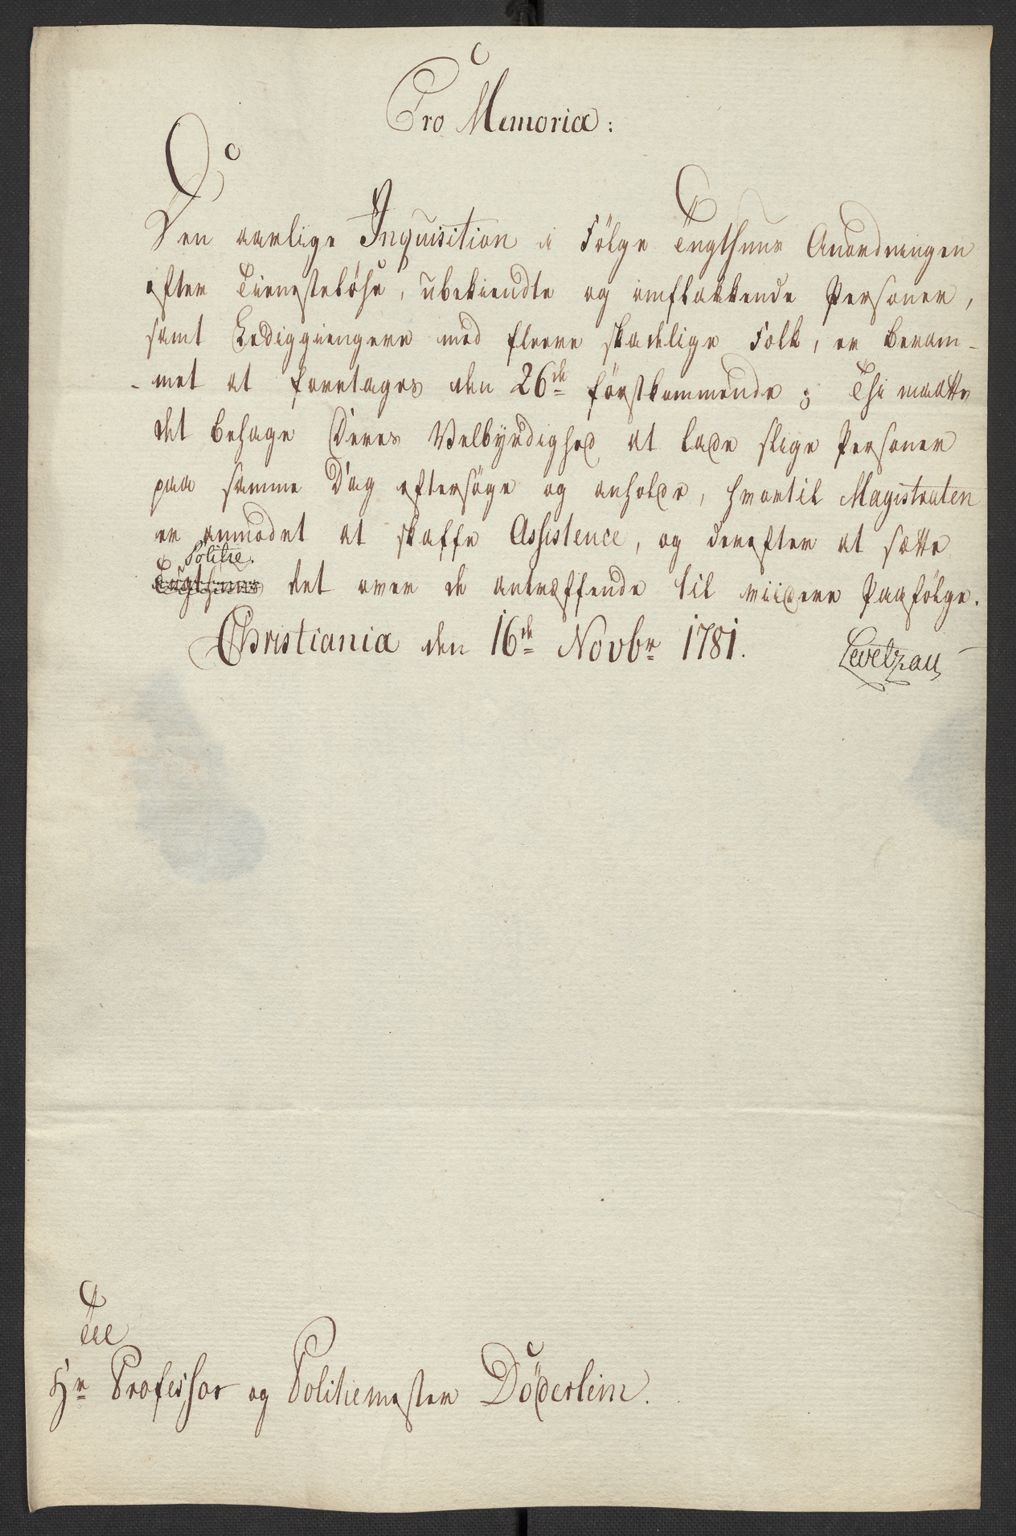 Pro Memoria:
Den aarlige Inqvisition i Følge Tugthuus Anordningen
efter Tienesteløse, ubekiendte og omflakkende Personer,
samt Lediggiengere med fleere skadelige Folk, er beram-
-met at foretages den 26de førstkommende; Thi maatte
det behage Deres Velbyrdighed at lade slige Personer
paa samme Dag eftersøge og anholde, hvortil Magistraten
er anmodet at skaffe Assistence, og derefter at sætte
Politie.
Tugthuus det over de antræffende til viidere Paafølge.
Christiania den 16de Novbr 1781.
Levetzau
Til
Hr Professor og Politiemester Döderlein.